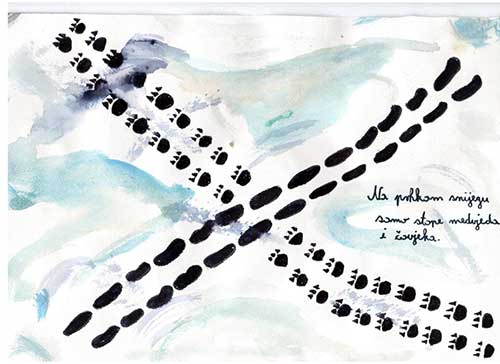 Na prhkom snijegu
samo stope medvjeda
i čovjeka.